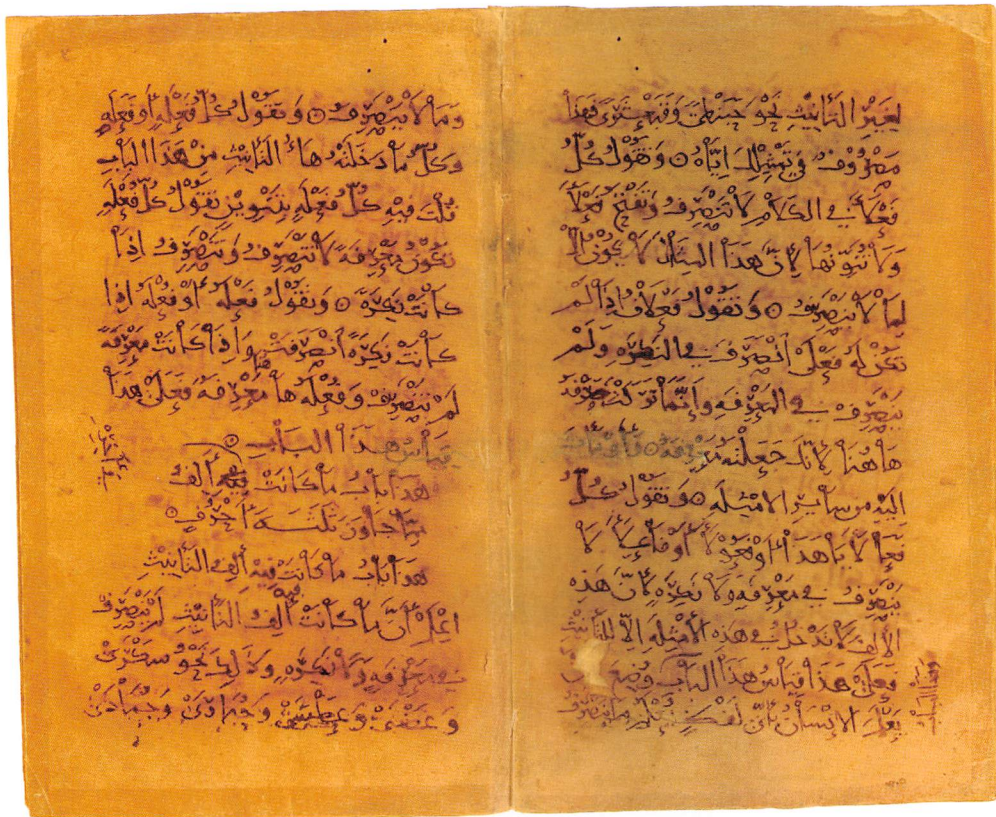 لغير التأنيث نحو حبنطى وقبعثرى فهذا
مصروف في تمثيلك اياه ۞ وتقول كل
فعلاء في الكلام لا تنصرف وتفتح فعلاء
ولا تنونها لأن هذا المثال لا يكون الا
لما لا ينصرف ۞ وتقول فعلان اذا لم
تكن له فعلى انصرف في النكرة ولم
ينصرف في المعرفة وانما تركت صرفه
هاهنا لانك جعلته معرفة
اليه من سائر الامثلة ۞ وتقول كل
لا
ينصرف في معرفة ولا نكرة لأن هذه
الالف لا تدخل في هذه الأمثلة الا للتأنيث
فعلى هذا قياس هذا الباب
ما ينصرف
وما لا ينصرف ۞ وتقول كل فعلة أو فعلة
وكل ما دخلته هاء التأنيث من هذا الباب
قلت فيه كل فعلة بتنوين تقول كل فعلة
تكون معرفة لا تنصرف وتنصرف اذا
كانت نكرة ۞ وتقول فعلة أو فعلة اذا
كانت نكرة انصرفت واذا كانت معرفة
لم تنصرف وفعلة ها معرفة فعلى هذا
قياس هذا الباب ۞
هذا باب ما كانت فيه ألف
مما جاوز ثلثة احرف ۞
هذا باب ما كانت فيه ألف التأنيث
اعلم أن ما كانت فيه ألف التأنيث لم ينصرف
في معرفة ولا نكرة وذلك نحو سكرى
وغضبى وعطشى وجمادى وجمادى